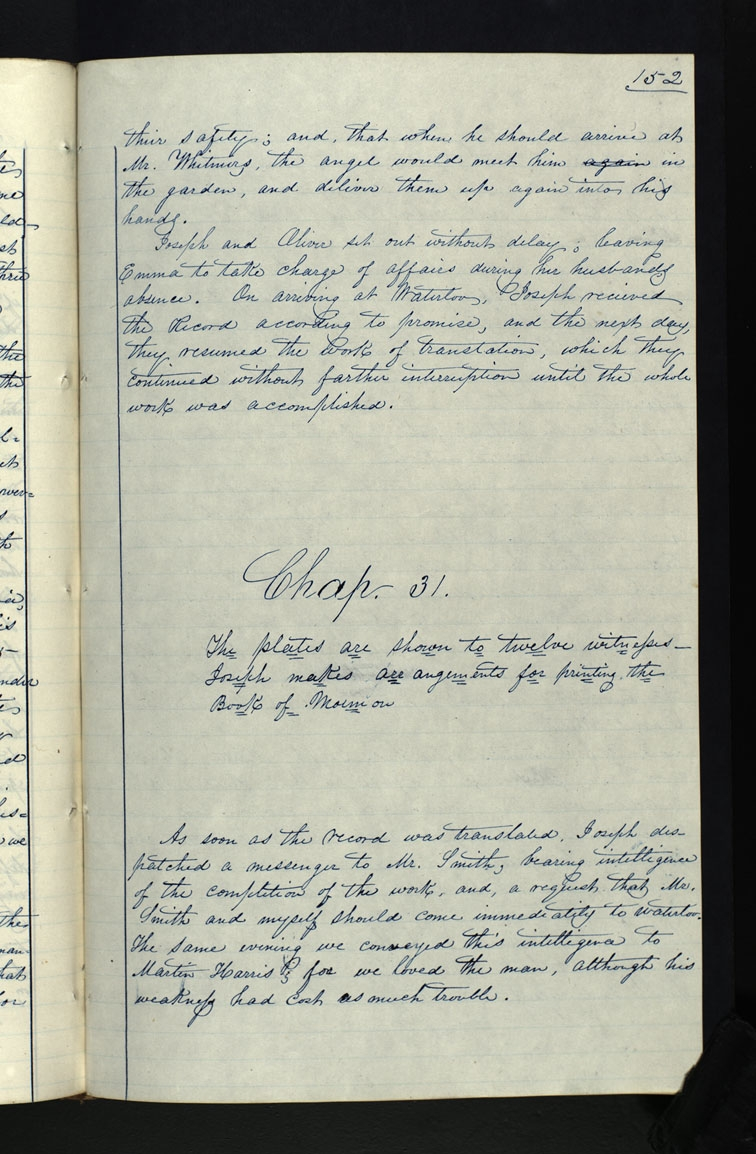 152
their safety; and, that when he should arrive at
Mr. Whitmers, the angel would meet him again in
the garden, and deliver them up again into his
hands.
Joseph and Oliver set out without delay; leaving
Emma to take charge of affairs during her husbands
absence. On arriving at Waterloo, Joseph recieved
the Record according to promise, and the next day,
they resumed the work of translation, which they
continued without farther interruption until the whole
work was accomplished.
Chap. 31.
The plates are shown to twelve witnesses—
Joseph makes arrangements for printing the
Book of Mormon
As soon as the record was translated, Joseph des-
patched a messenger to Mr. Smith, bearing intelligence
of the completion of the work, and, a request that Mr.
Smith and myself should come immediately to Waterloo.
The same evening we conveyed this intelligence to
Martin Harris; for we loved the man, although his
weakness had cost us much trouble.